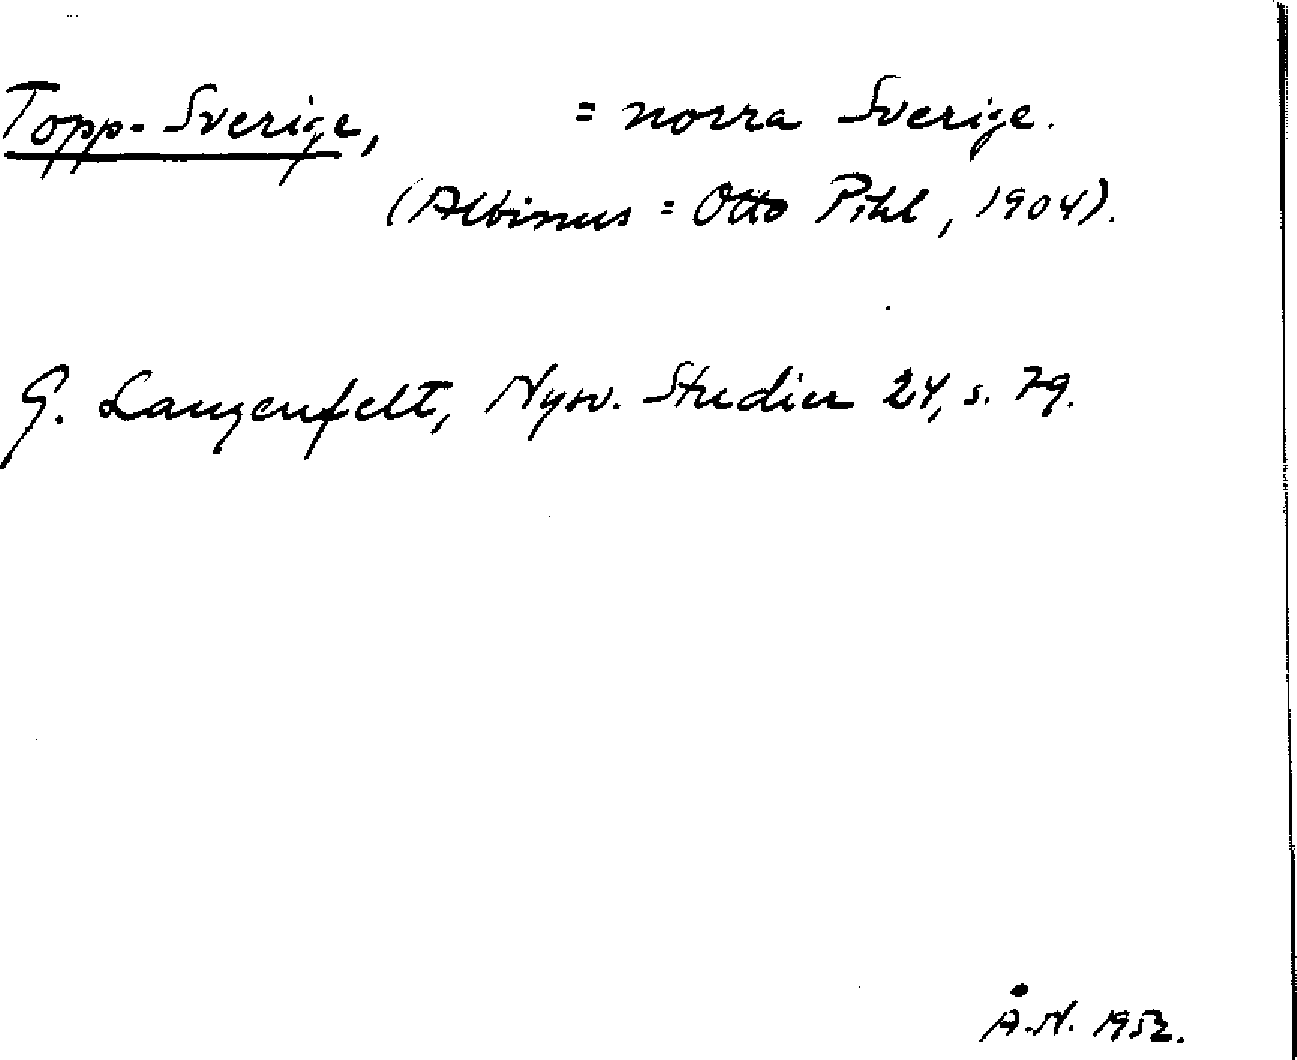 Topp-Sverige, = norra Sverige.
(Albinus = Otto Pihl, 1904).
G. Langenfelt, Nysv. Studier 24, s. 79.
Å.N. 1952.